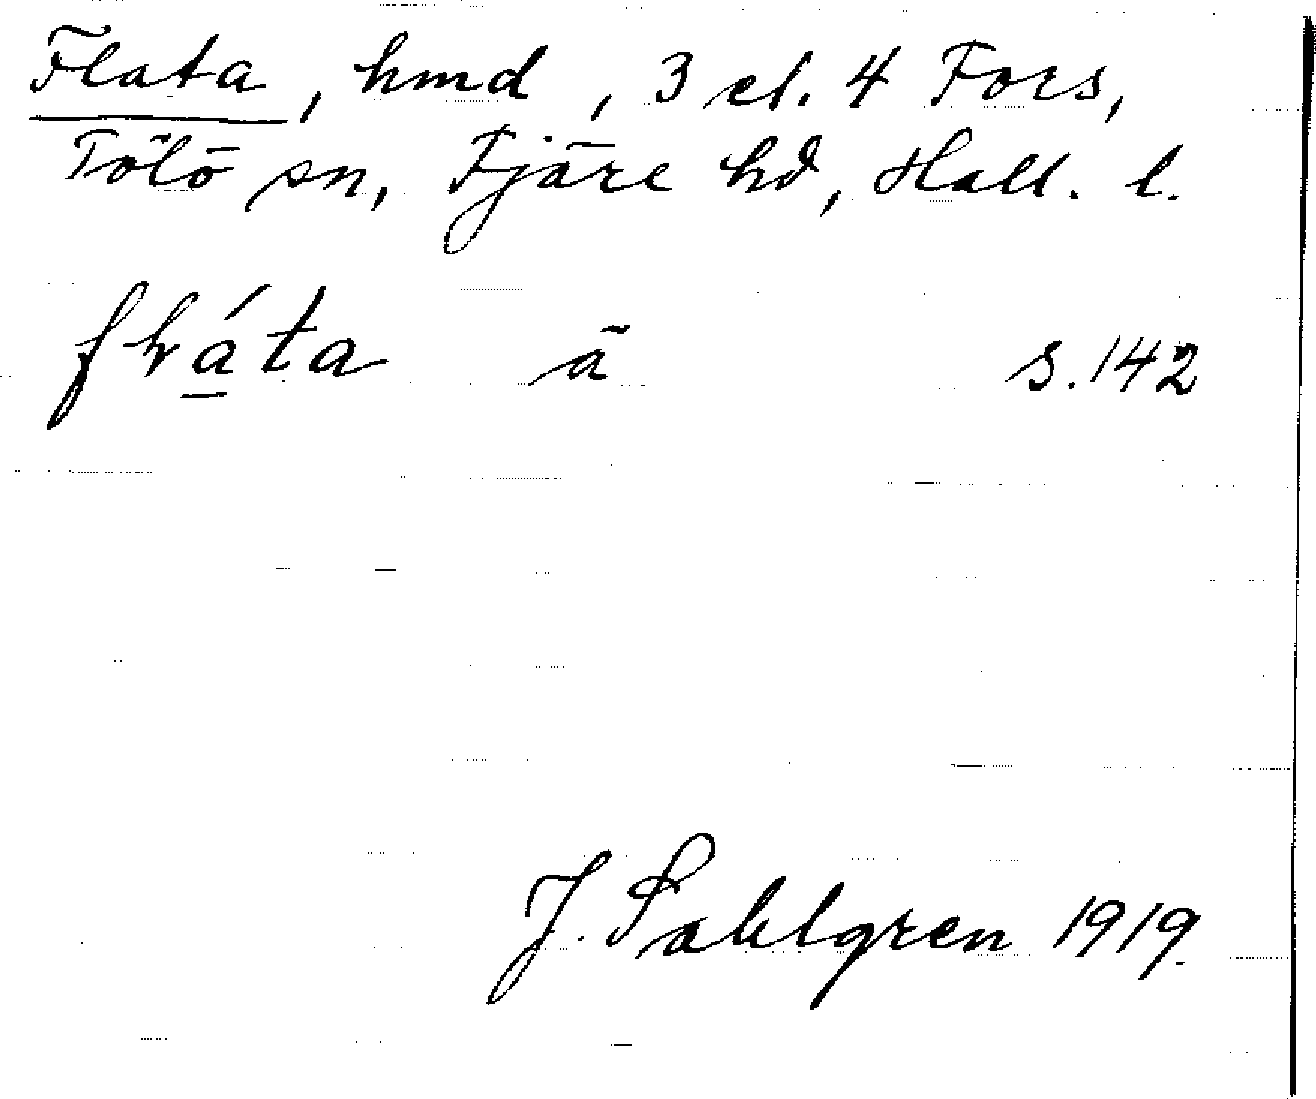 Flata, hmd, 3 et. 4 Fors,
Tölö sn, Fjäre hd, Hall. l.
fháta ā s. 142
J. Sahlgren 1919.